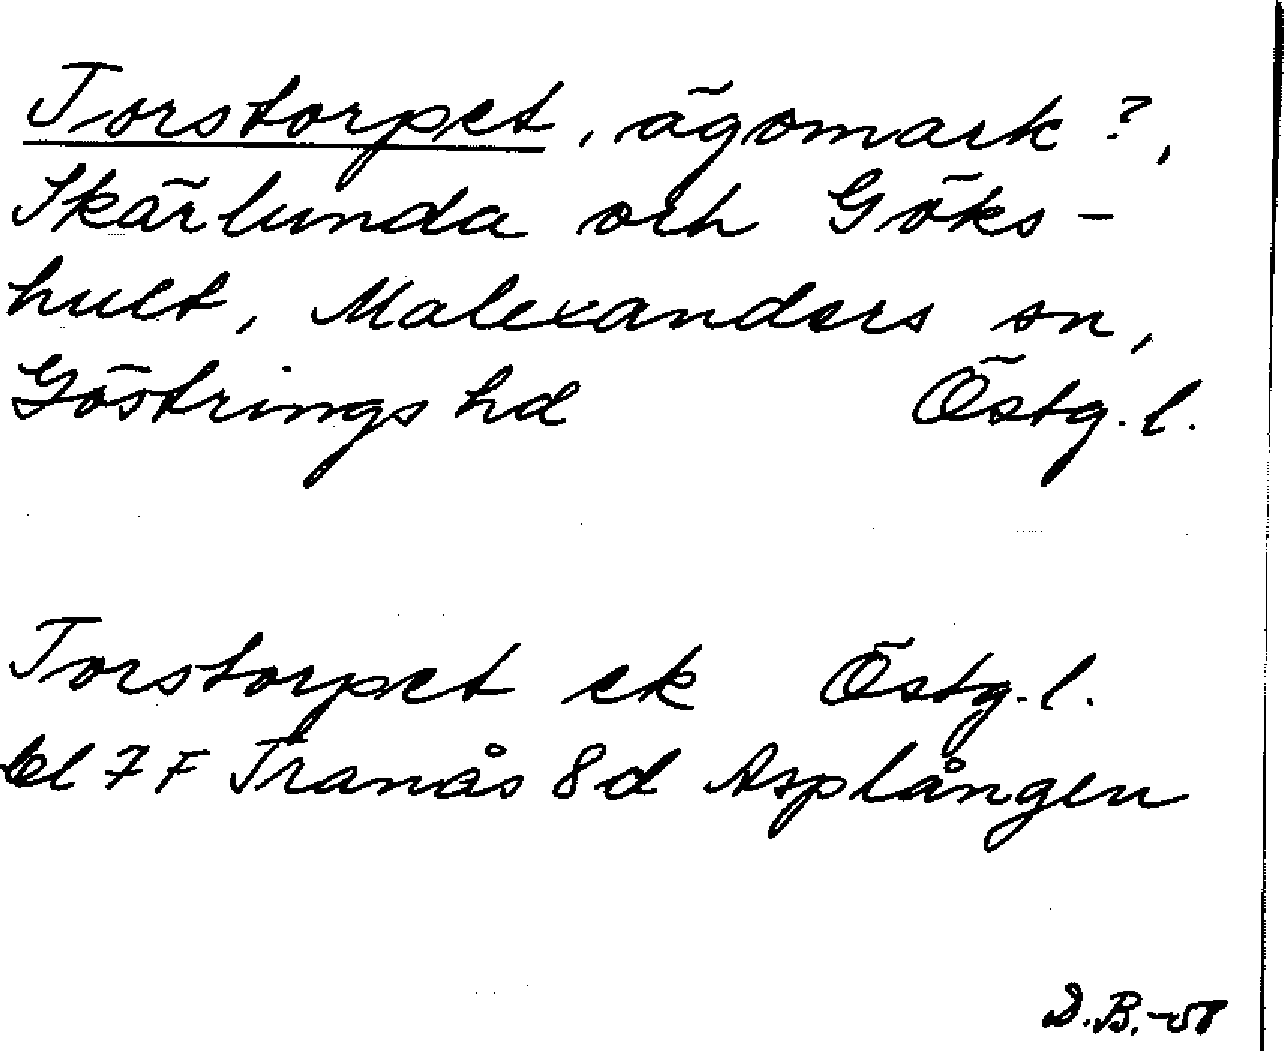 Torstorpet, ägomark?,
Skärlunda och Göks-
hult, Malexanders sn,
Göstrings hd Östg.l.
Torstorpet ek Östg.l.
bl 7 F Tranås 8d Asplången
D.B.-58